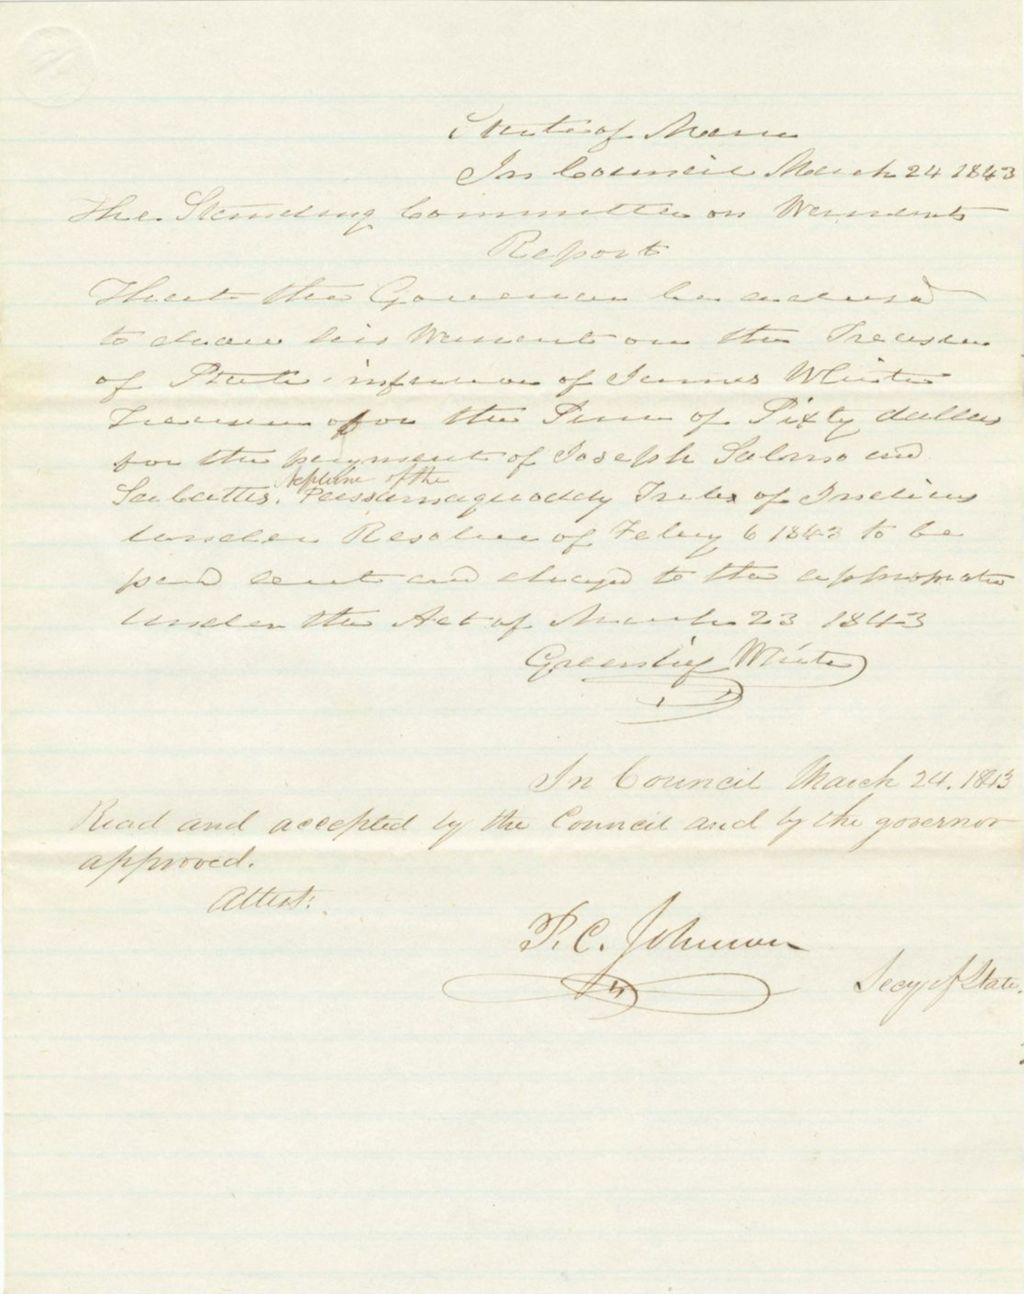 State of Maine
In Council March 24 1843
The Standing Committee on Warrants
Report
That the Governor be advised
to draw his Warrant on the Treasurer
of State in favor of James White
Treasurer for the Sum of Sixty dollars
for the payment of Joseph Salmo and
Neptune of the
Sabattis Passamaquoddy Tribe of Indians
under Resolve of Feby 6 1843 to be
paid out and charged to the appropriation
under the Act of March 23 1843
Greenlief White
In Council March 24. 1843
Read and accepted by the Council and by the governor
approved.
Attest:
P. C. Johnson
Secy of State.